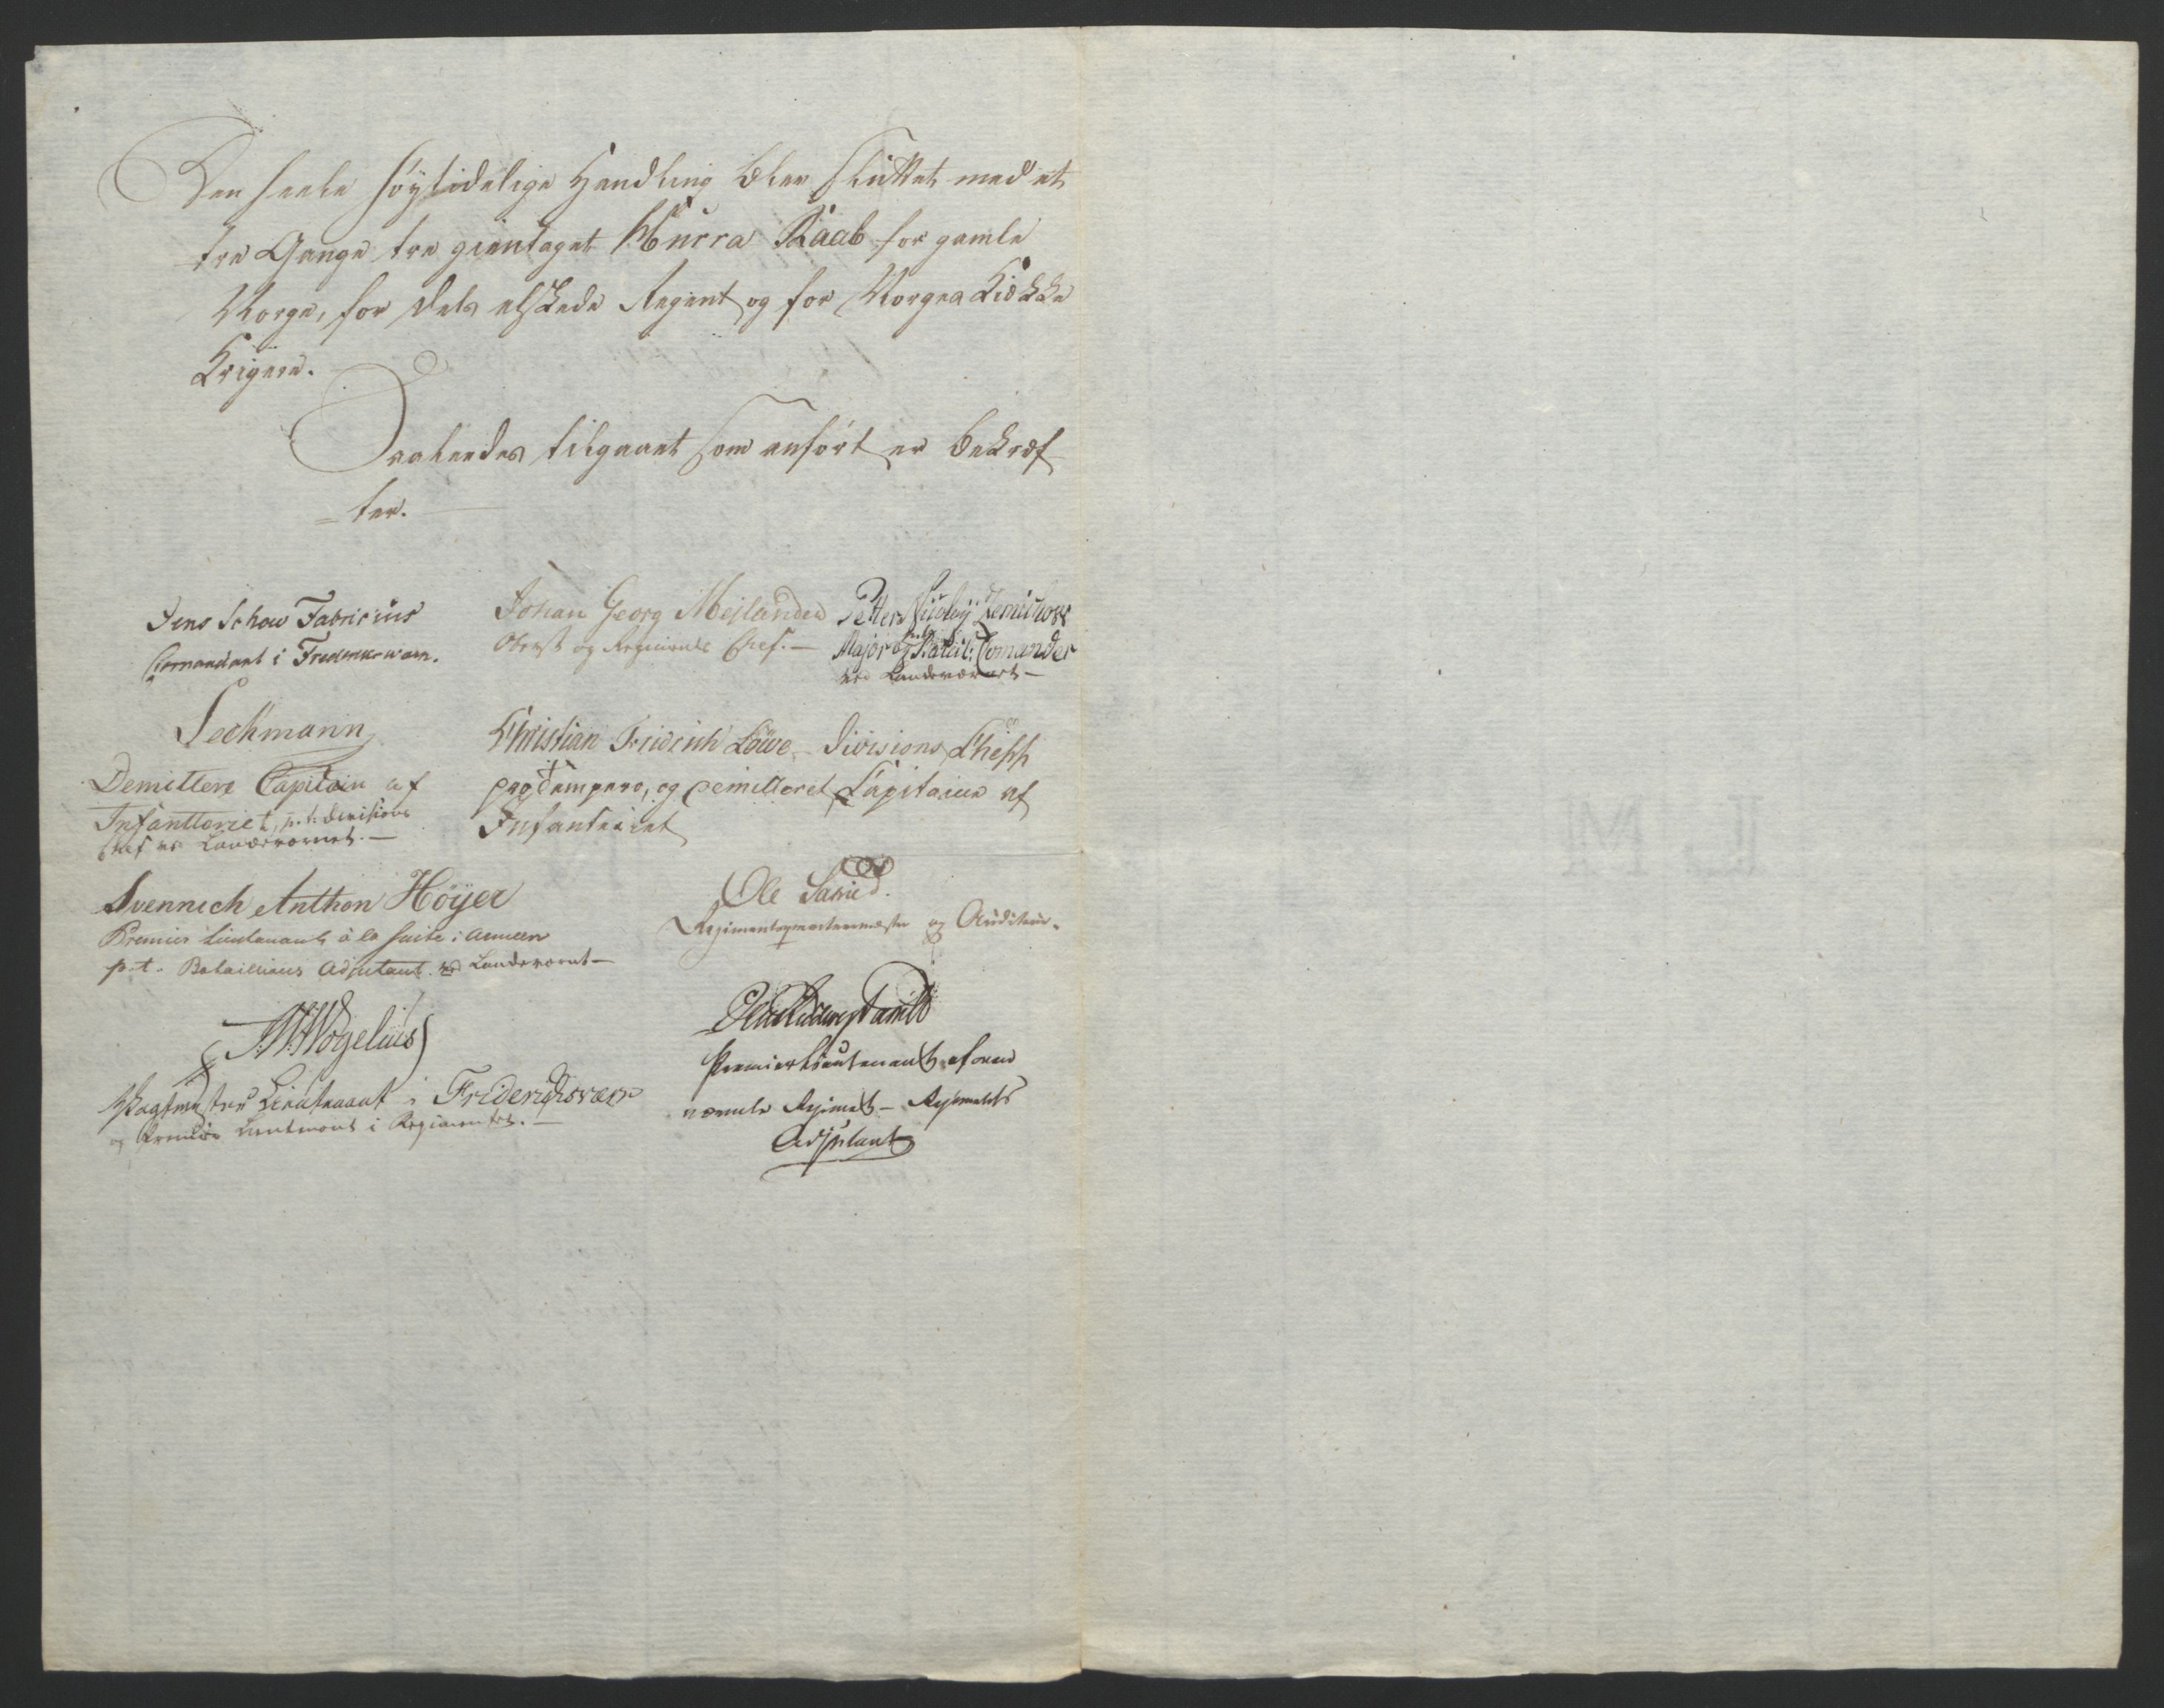 Den heele höytidelige Handling blev sluttet med et
tre Gange tre gientaget Hurra Raab for gamle
Norge, for dets elskede Regent og for Norges Kiökke
Krigere.
Saaledes tilgaaet som anfört er bekræf
=ter.
Jens Schow Fabricius
Commandant i Frederiksværn.
Johan Georg Mejlænder
Oberst og Regiments Chef. —
Petter Nicolay
Major og Batail: Comander
ved Landeværnet —
Lechmann
Demitteret Capitain af
Infantteriet, p.t. Divisions
Chef ved Landeværnet. —
Christian Fridrich Löwe Divisions Cheff
pro tempore, og demitteret Capitaine af
Infanteriet
Svennich Anthon Höyer
Premier Lieutenant à la Suite i Armeen
p.t. Batallions Adjutant ved Landeværnet —
Ole
Regimentsqvarteermester og Auditeur.
Wogelius
Vagtmester Lieutenant i Friderichsværn
og Premier Lieutenant i Regimentet. —
Premierlieutenant af oven
nævnte Regiment — Regiments
Adjutant